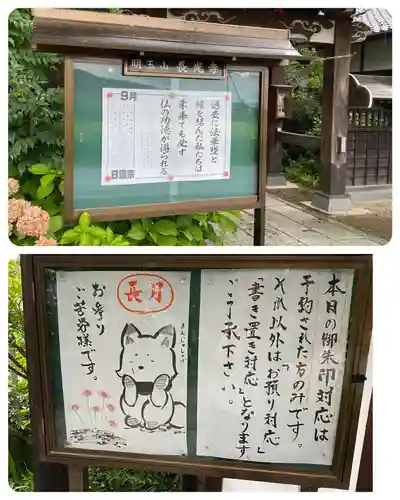 明玉山 長光寺
過去に法華経と
縁を結んだ私たちは
未来でも必ず
仏の功徳が得られる
9月
日蓮宗
本日の御朱印対応は
予約された方のみです。
それ以外は「お預り対応」
「書き置き対応」となります
ご了承下さい。
長月
お参り
ご苦労様です。